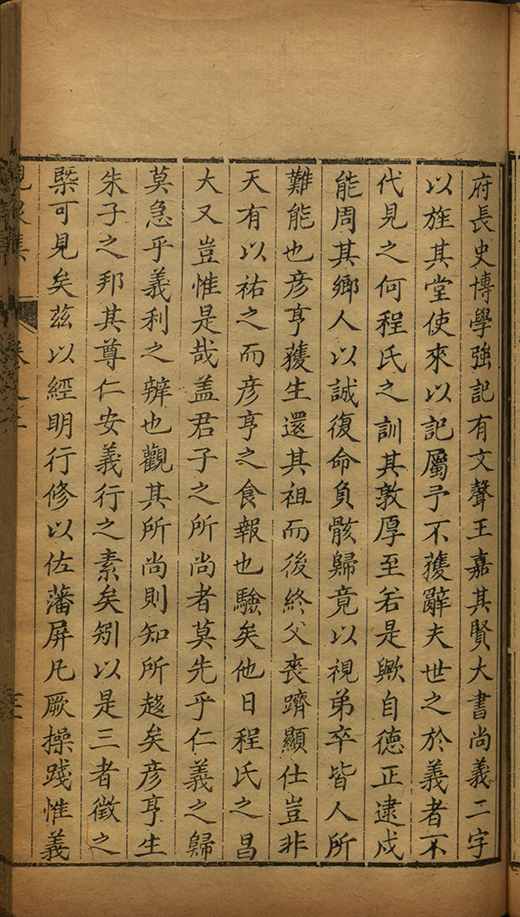 府長史博學強記有文聲王嘉其賢大書尚義二字
以旌其堂使來以記屬予不獲辭夫世之於義者不
代見之何程氏之訓其敦厚至若是歟自德正逮戍
能周其鄉人以誠復命負骸歸竟以視弟卒皆人所
難能也彥亨獲生還其祖而後終父喪躋顯仕豈非
天有以祐之而彥亨之食報也驗矣他日程氏之昌
大又豈惟是哉盖君子之所尚者莫先乎仁義之歸
莫急乎義利之辨也觀其所尚則知所趍矣彥亨生
朱子之邦其尊仁安義行之素矣矧以是三者徵之
槩可見矣茲以經明行修以佐藩屏凡厥操踐惟義